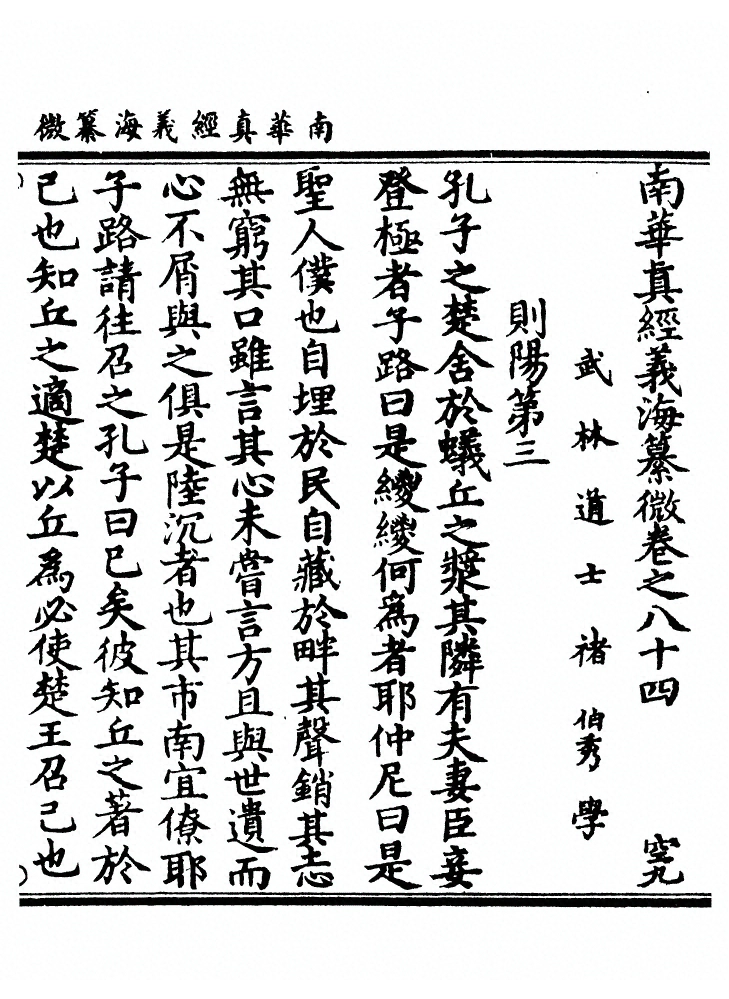 南華真經義海纂微
南華真經義海纂微卷之八十四 空九
武林道士褚伯秀學
則陽第三
孔子之楚舍於蟻丘之漿其隣有夫妻臣妾
登極者子路曰是緵緵何為者耶仲尼曰是
聖人僕也自埋於民自藏於畔其聲銷其志
無窮其口雖言其心未嘗言方且與世遺而
心不屑與之俱是陸沉者也其市南宜僚耶
子路請往召之孔子曰已矣彼知丘之著於
己也知丘之適楚以丘為必使楚王召己也